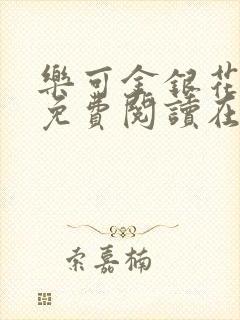 樂可金銀花
免費閱讀在
索嘉楠